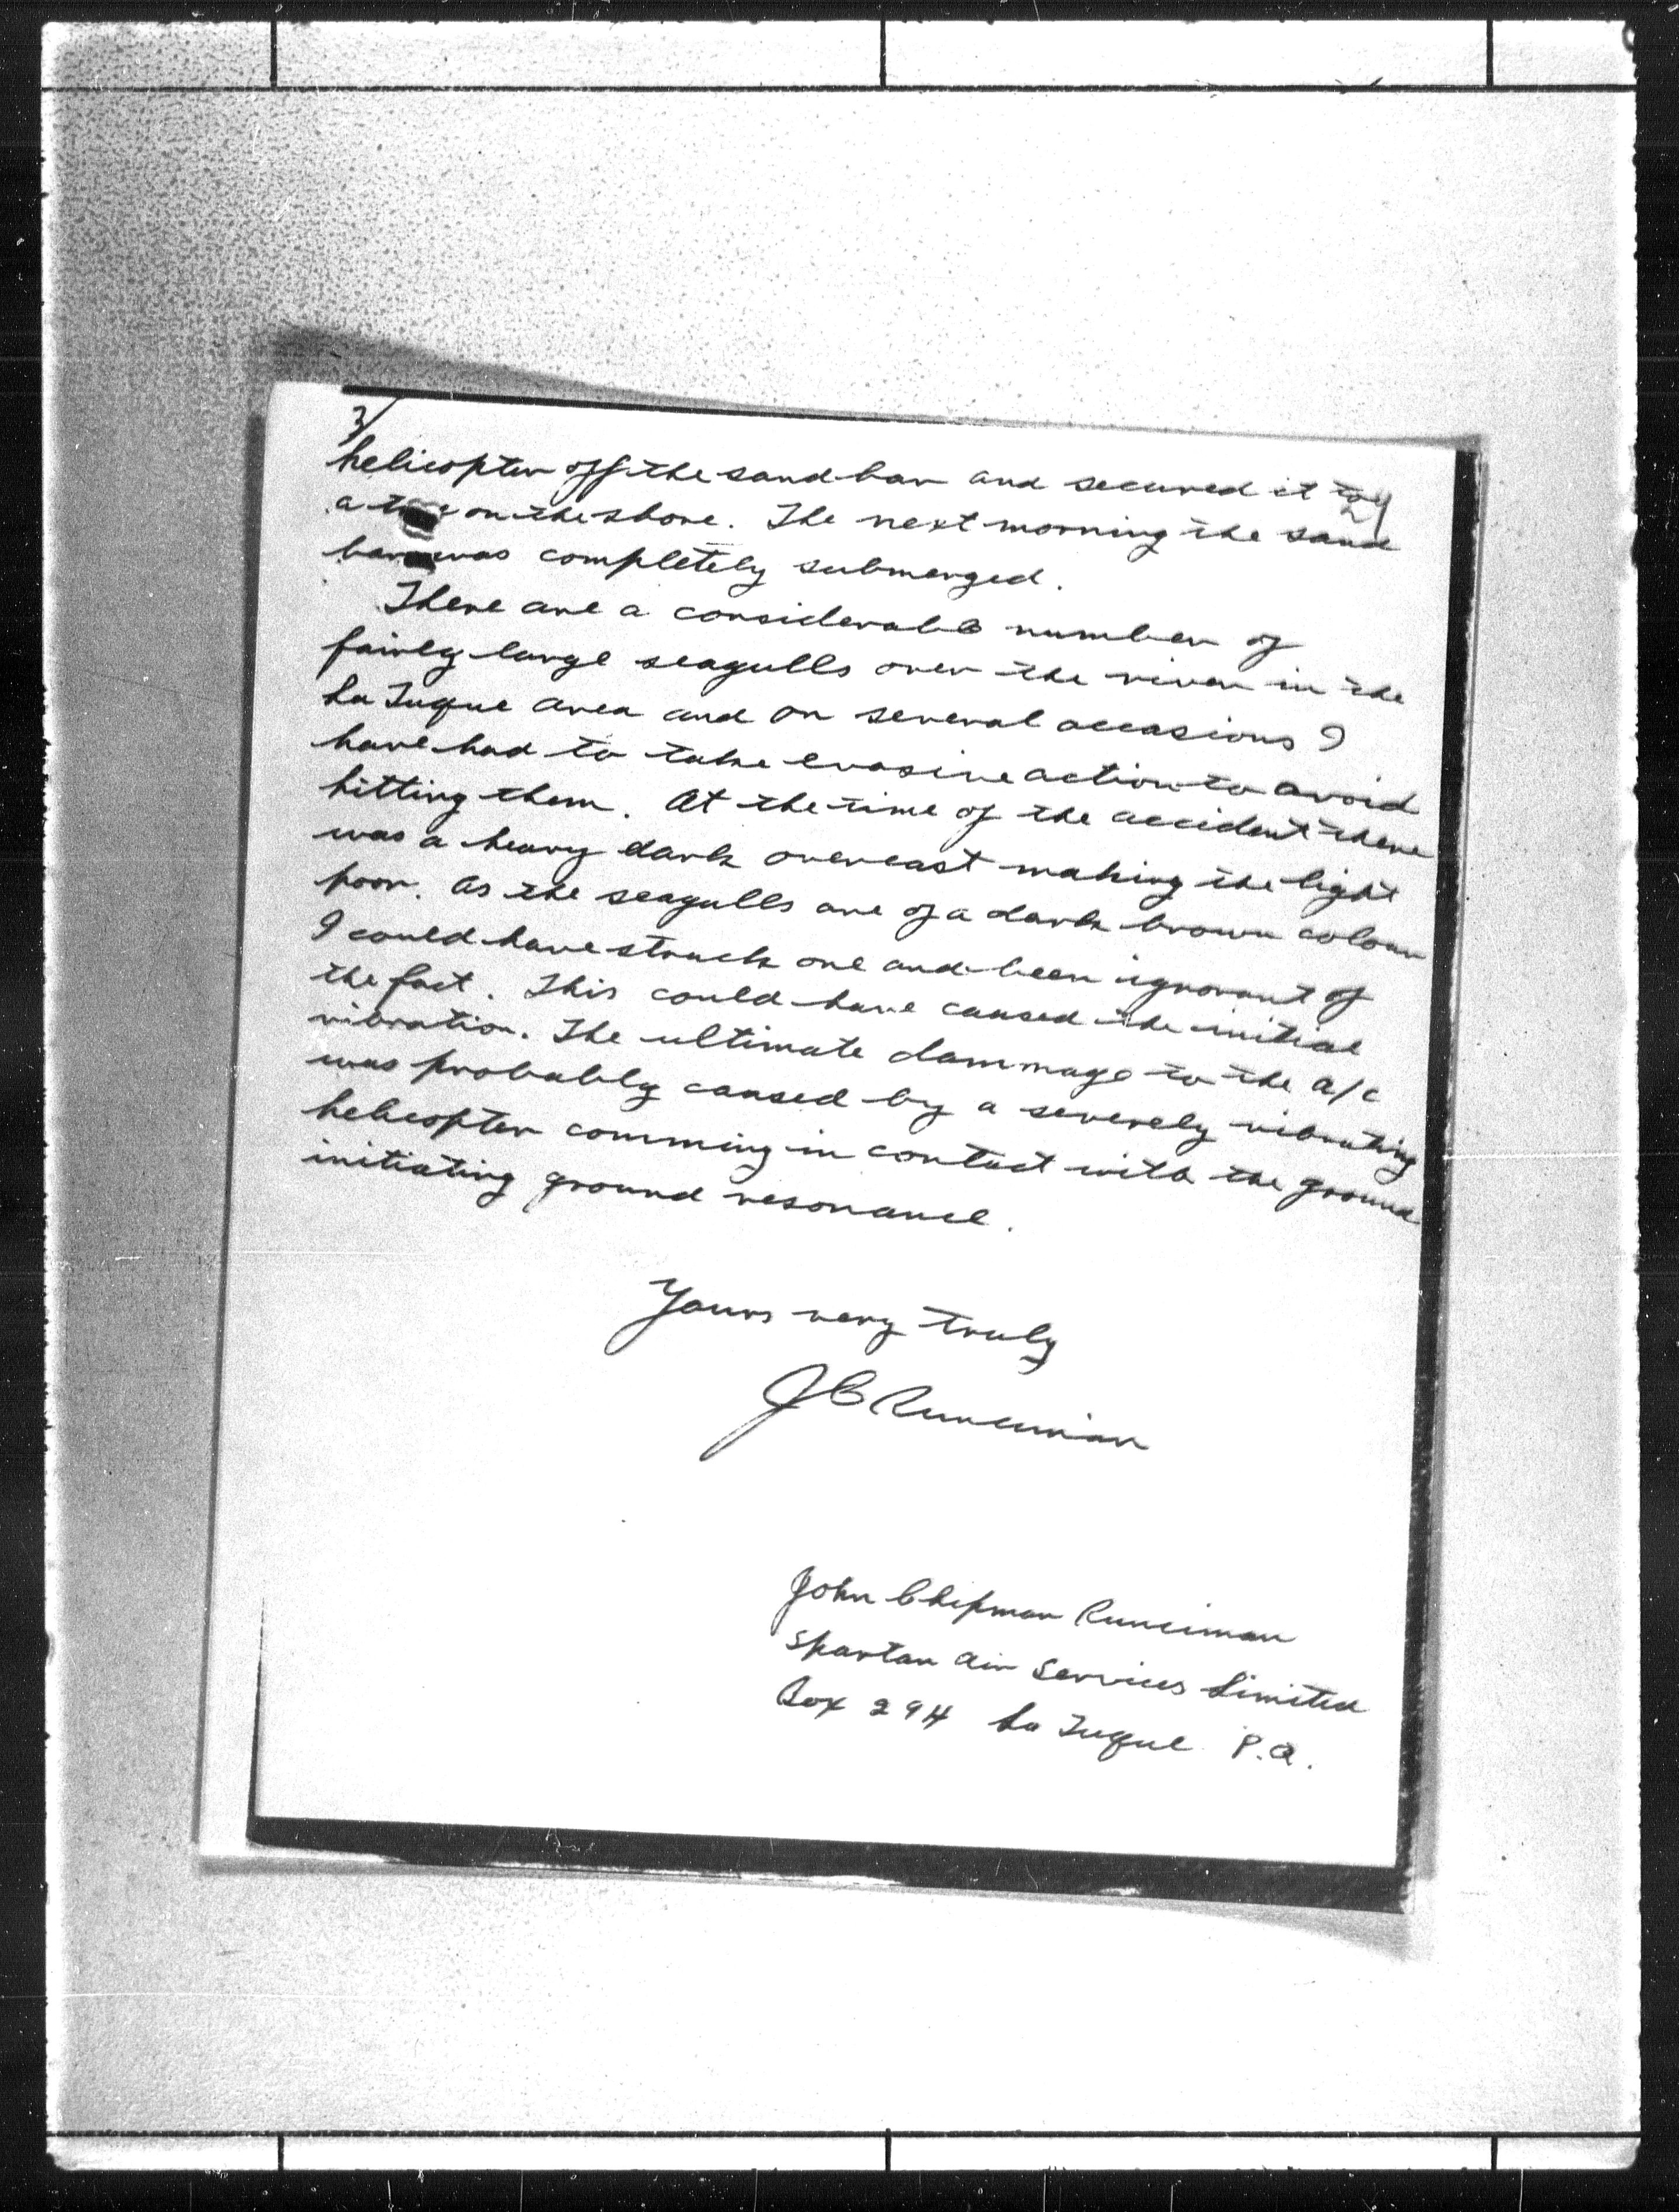 3/
helicopter off the sand bar and secured it to
a tree on the shore. The next morning the sand
bar was completely submerged.
There are a considerable number of
fairly large seagulls over the river in the
La Tuque area and on several occasions I
have had to take evasive action to avoid
hitting them. At the time of the accident there
was a heavy dark overcast making the light
poor. As the seagulls are of a dark brown colour
I could have struck one and been ignorant of
the fact. This could have caused the initial
vibration. The ultimate dammage to the a/c
was probably caused by a severely vibrating
helicopter comming in contact with the ground
initiating ground resonance.
Yours very truly
J C Runciman
John Chipman Runciman
Spartan Air Services Limited
Box 294 La Tuque P.Q.